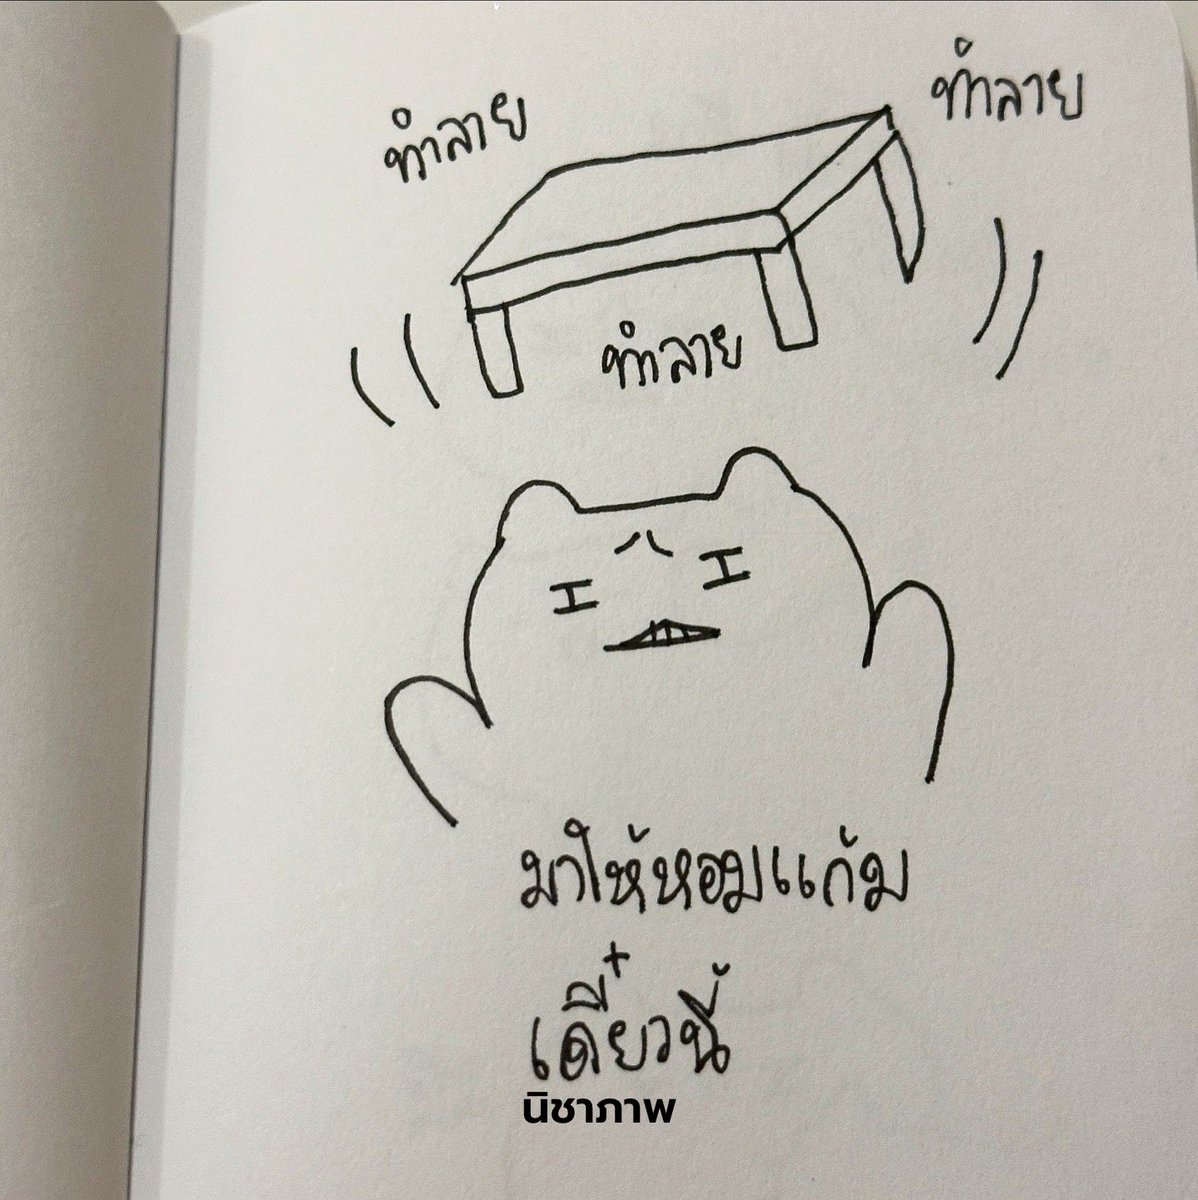 ทำลาย
ทำลาย
ทำลาย
มาให้หอมแก้ม
เดี๋ยวนี้
นิชาภาพ